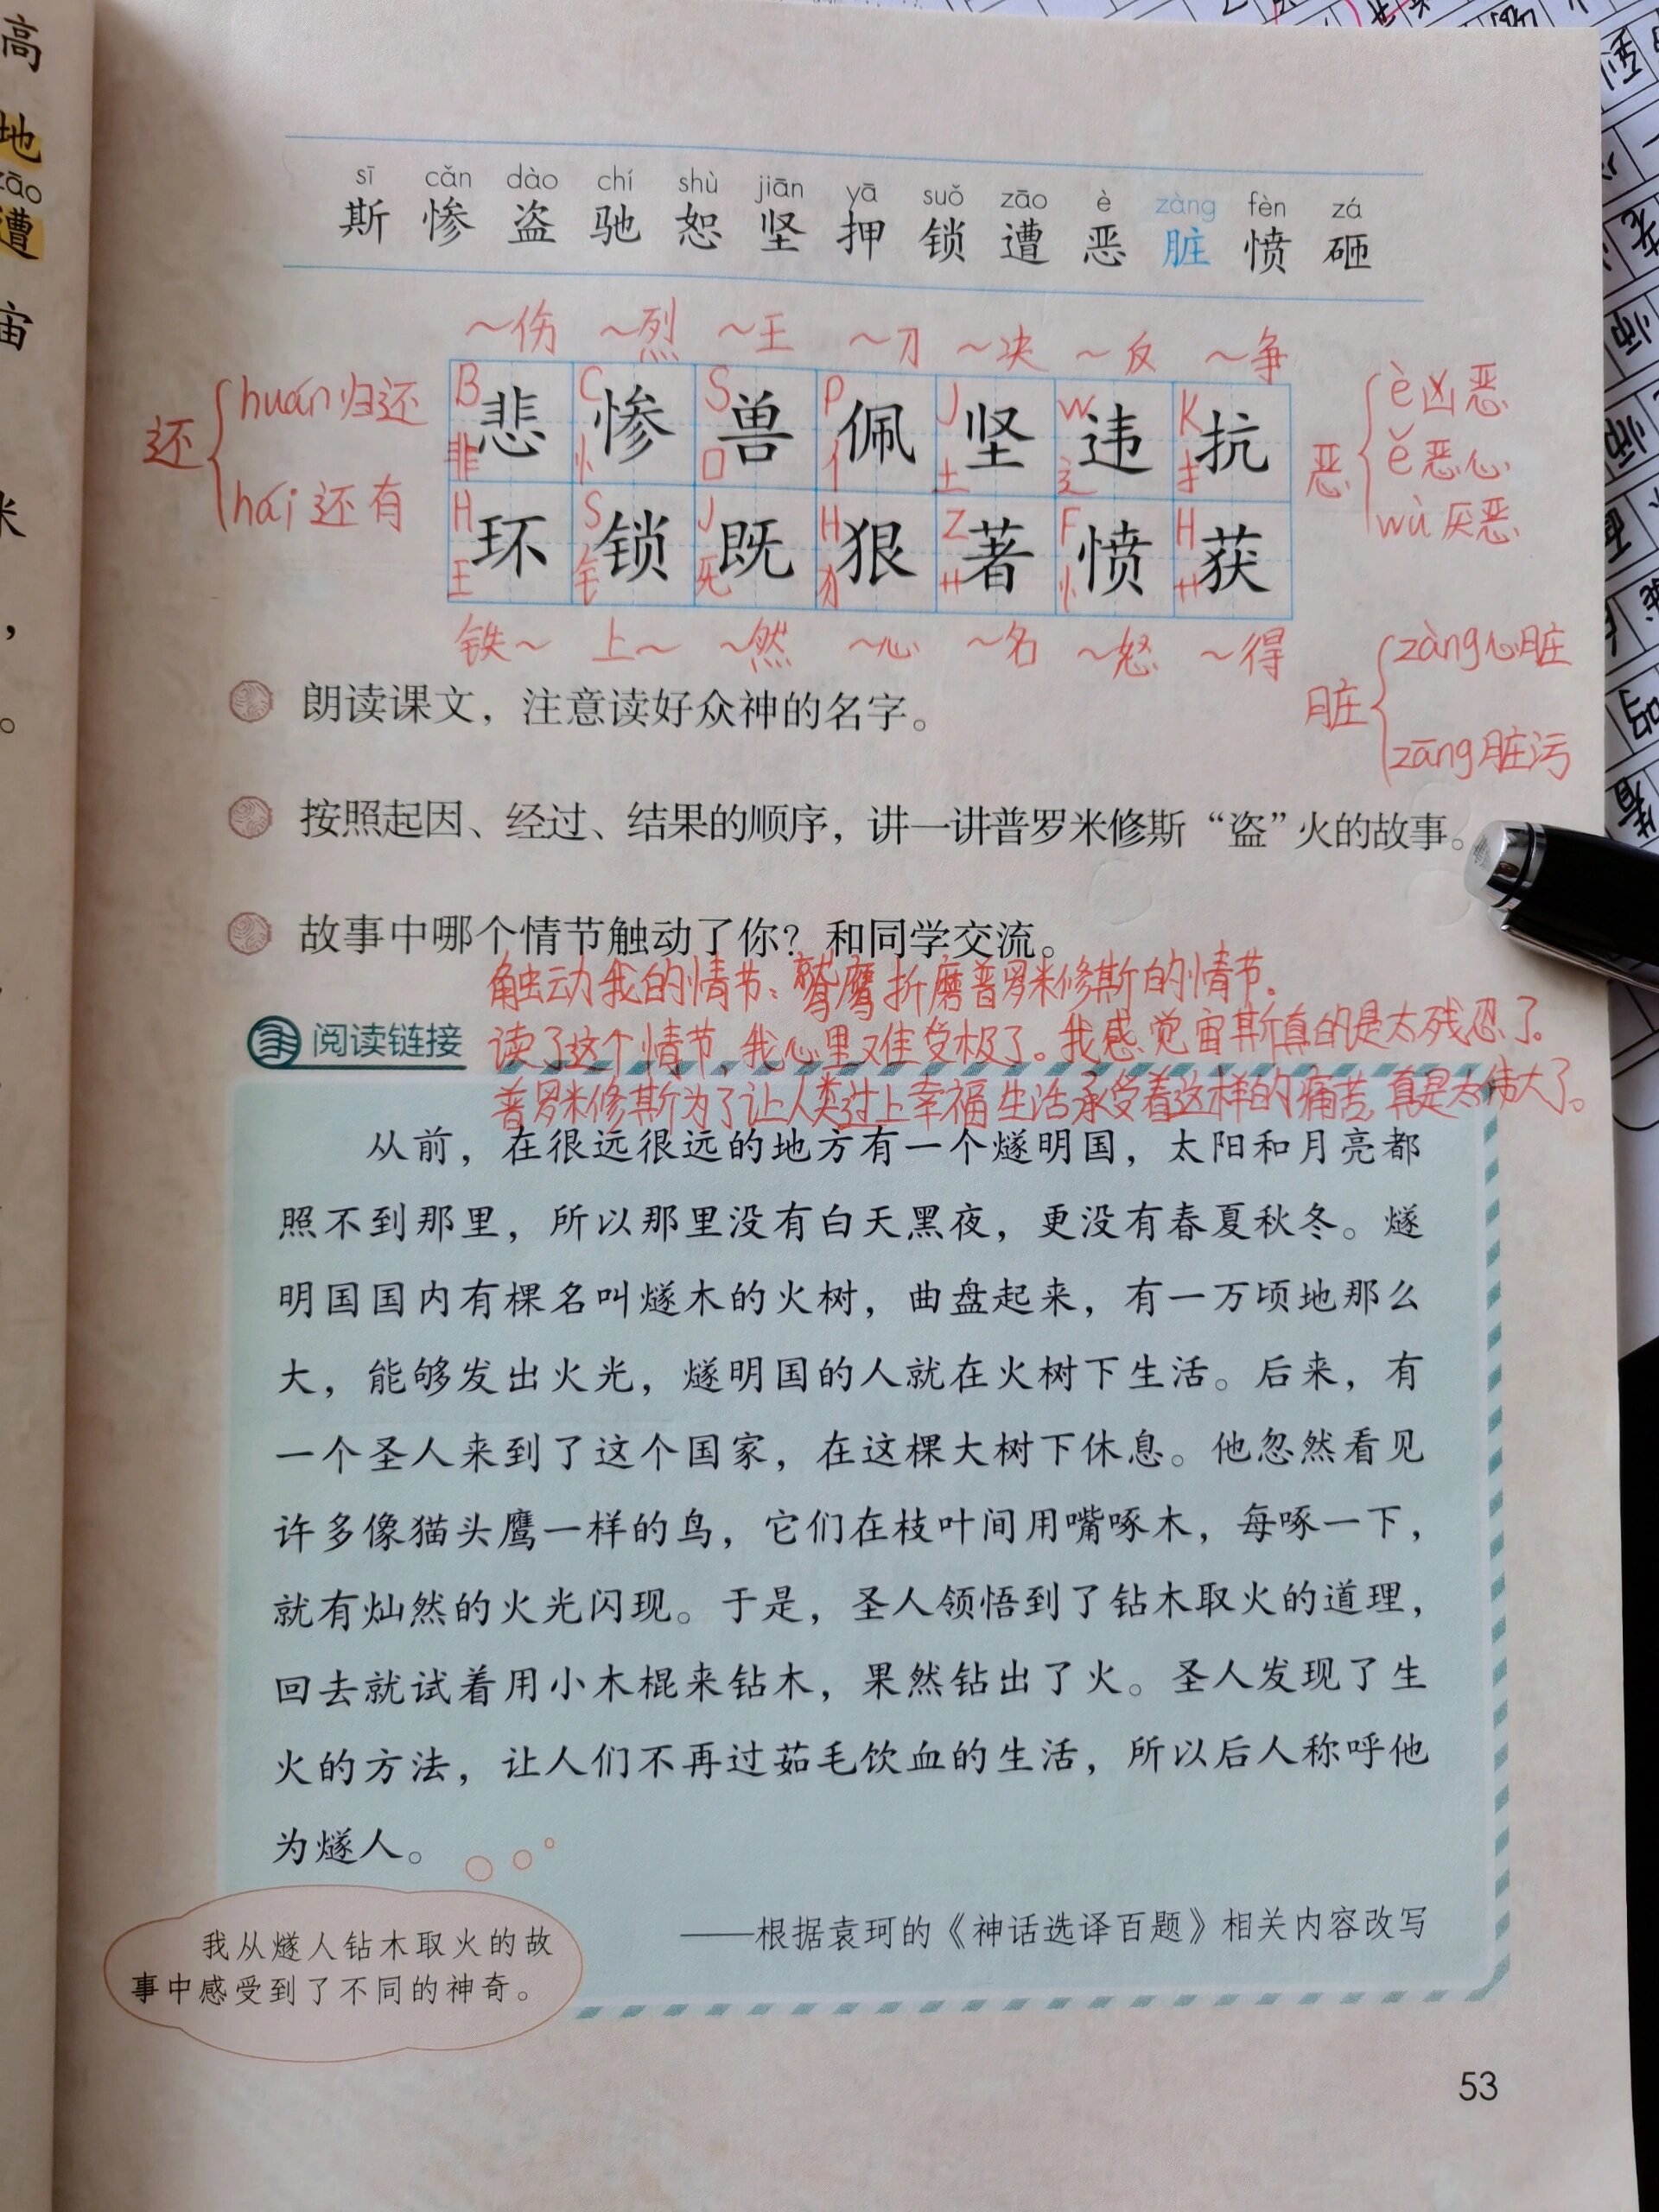 高
地
zāo
遭
宙
米
，
。
sī cǎn dào chí shù jiān yā suǒ zāo è zàng fèn zá
斯 惨 盗 驰 恕 坚 押 锁 遭 恶 脏 愤 砸
～伤 ～烈 ～王 ～刀 ～决 ～反 ～争
B C S P J W K
悲 惨 兽 佩 坚 违 抗
非 忄 口 亻 土 辶 扌
H S J H Z F H
环 锁 既 狠 著 愤 获
王 钅 旡 犭 艹 忄 艹
铁～ 上～ ～然 ～心 ～名 ～怒 ～得
还
huán 归还
hái 还有
恶
è 凶恶
ě 恶心
wù 厌恶
脏
zàng 心脏
zāng 脏污
朗读课文，注意读好众神的名字。
按照起因、经过、结果的顺序，讲一讲普罗米修斯“盗”火的故事。
故事中哪个情节触动了你？和同学交流。
触动我的情节：鹫鹰折磨普罗米修斯的情节。
读了这个情节，我心里难受极了。我感觉宙斯真的是太残忍了。
普罗米修斯为了让人类过上幸福生活承受着这样的痛苦，真是太伟大了。
阅读链接
从前，在很远很远的地方有一个燧明国，太阳和月亮都
照不到那里，所以那里没有白天黑夜，更没有春夏秋冬。燧
明国国内有棵名叫燧木的火树，曲盘起来，有一万顷地那么
大，能够发出火光，燧明国的人就在火树下生活。后来，有
一个圣人来到了这个国家，在这棵大树下休息。他忽然看见
许多像猫头鹰一样的鸟，它们在枝叶间用嘴啄木，每啄一下，
就有灿然的火光闪现。于是，圣人领悟到了钻木取火的道理，
回去就试着用小木棍来钻木，果然钻出了火。圣人发现了生
火的方法，让人们不再过茹毛饮血的生活，所以后人称呼他
为燧人。
——根据袁珂的《神话选译百题》相关内容改写
我从燧人钻木取火的故
事中感受到了不同的神奇。
53